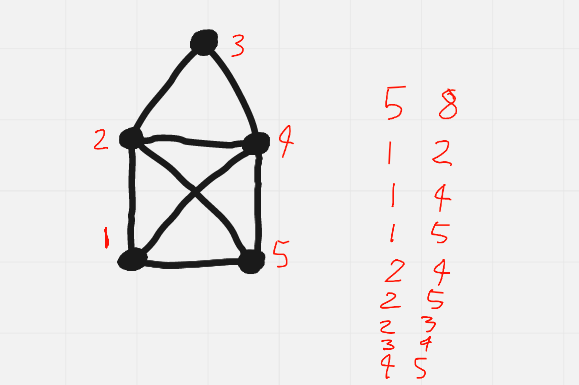 3
2
4
1
5
5 8
1 2
1 4
1 5
2 4
2 5
2 3
3 4
4 5